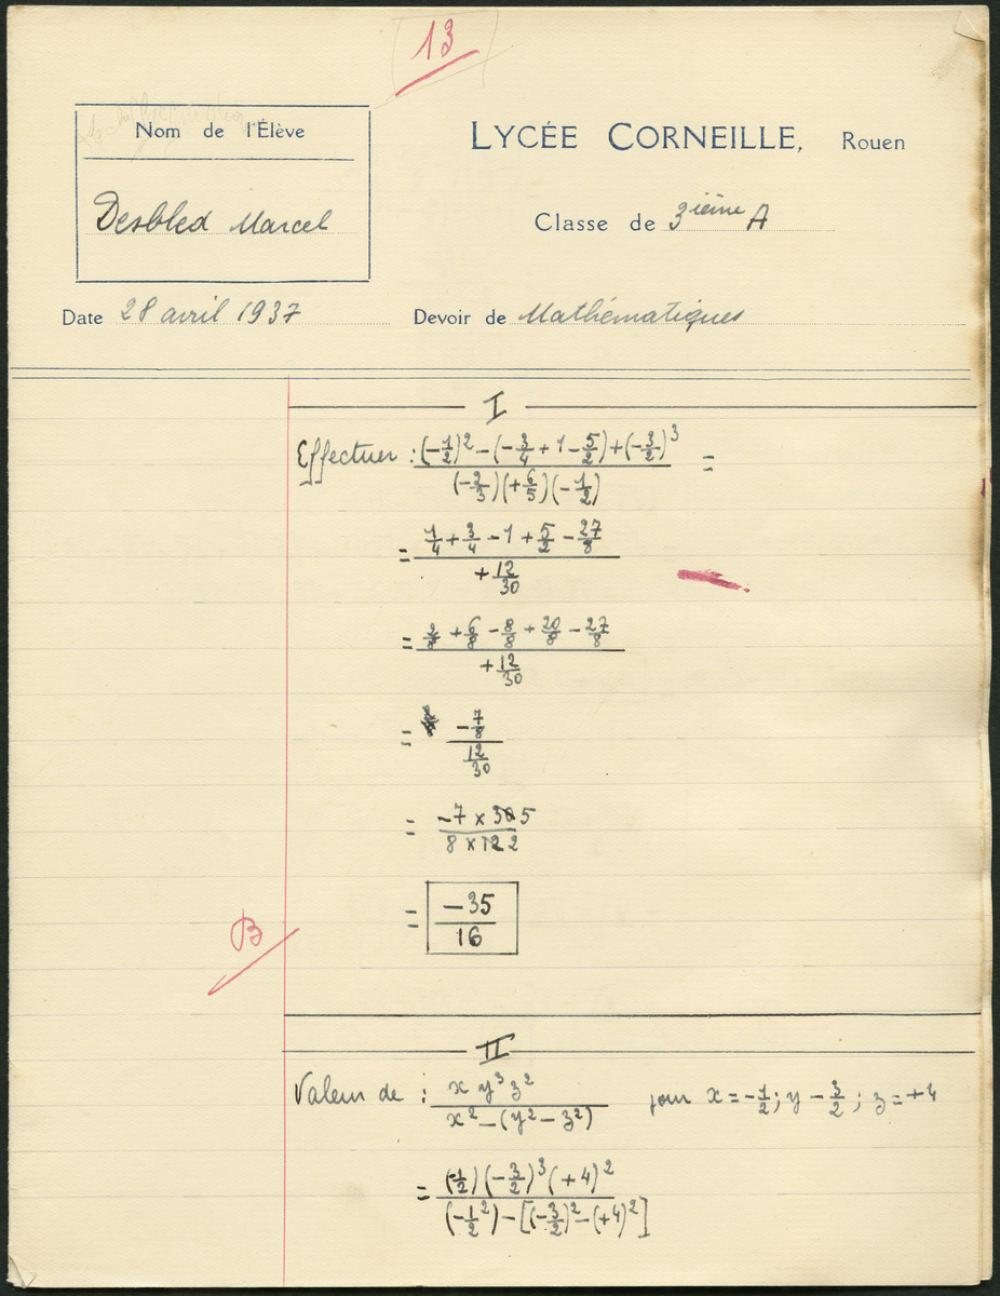 13
Nom de l'Élève
Desbled Marcel
LYCÉE CORNEILLE, Rouen
Classe de 3ième A
Date 28 avril 1937
Devoir de Mathématiques
I
Effectuer : ((-1/2)² - (-3/4 + 1 - 5/2) + (-3/2)³) / ((-2/3)(+6/5)(-1/2)) =
= (1/4 + 3/4 - 1 + 5/2 - 27/8) / (+12/30)
= (2/8 + 6/8 - 8/8 + 20/8 - 27/8) / (+12/30)
= (-7/8) / (12/30)
= (-7 × 30 5) / (8 × 12 2)
= -35/16
B
II
Valeur de : (x y³ z²) / (x² - (y² - z²)) pour x = -1/2 ; y - 3/2 ; z = +4
= ((-1/2)(-3/2)³(+4)²) / ((-1/2²) - [(-3/2)² - (+4)²])